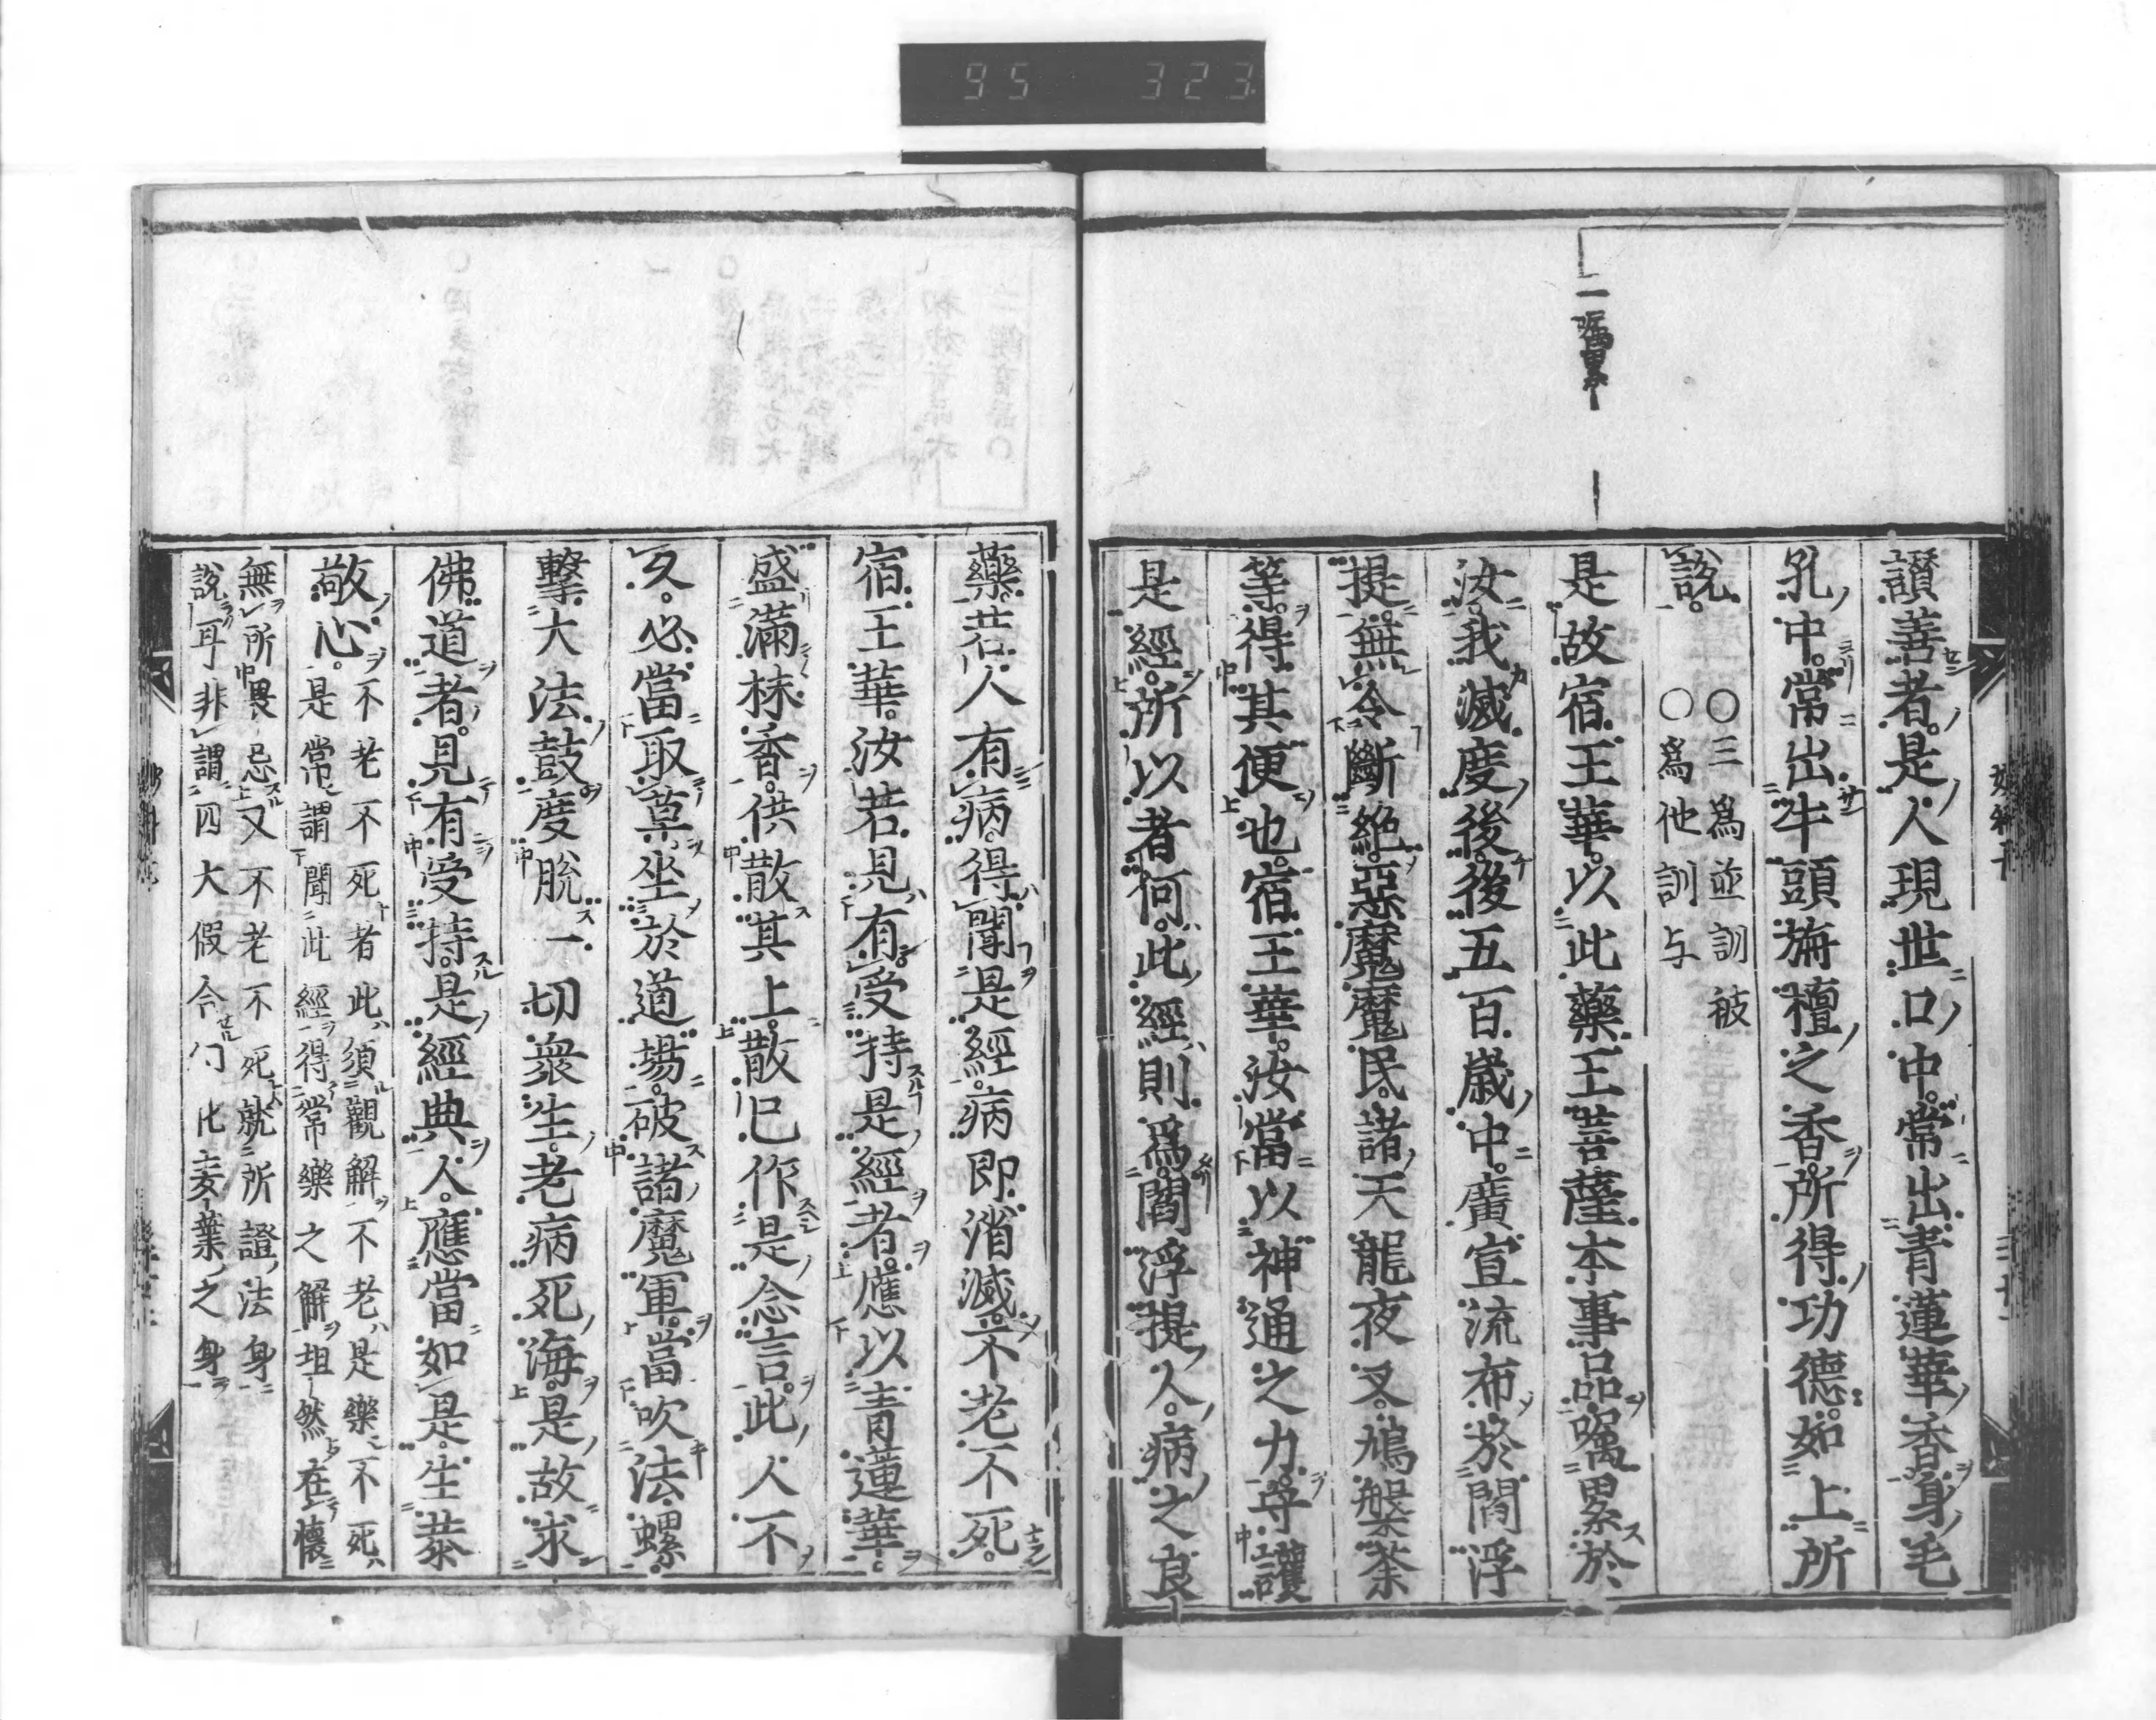 95 323
二囑累
讃善者是人現世口中常出青蓮華香身毛
孔中常出牛頭旃檀之香所得功德如上所
說
〇三爲並訓被
〇爲他訓与
是故宿王華以此藥王菩薩本事品囑累於
汝我滅度後後五百歳中廣宣流布於閻浮
提無令斷絶惡魔魔民諸天龍夜叉鳩槃荼
等得其便也宿王華汝當以神通之力守護
是經所以者何此經則爲閻浮提人病之良
藥若人有病得聞是經病即消滅不老不死
宿王華汝若見有受持是經者應以青蓮華
盛滿抹香供散其上散已作是念言此人不
久必當取草坐於道場破諸魔軍當吹法螺
擊大法鼓度脫一切衆生老病死海是故求
佛道者見有受持是經典人應當如是生恭
敬心
不老不死者此須觀解不老是樂不死
是常謂聞此經得常樂之解坦然在懷
無所畏忌又不老不死就所證法身
說耳非謂四大假合
之身